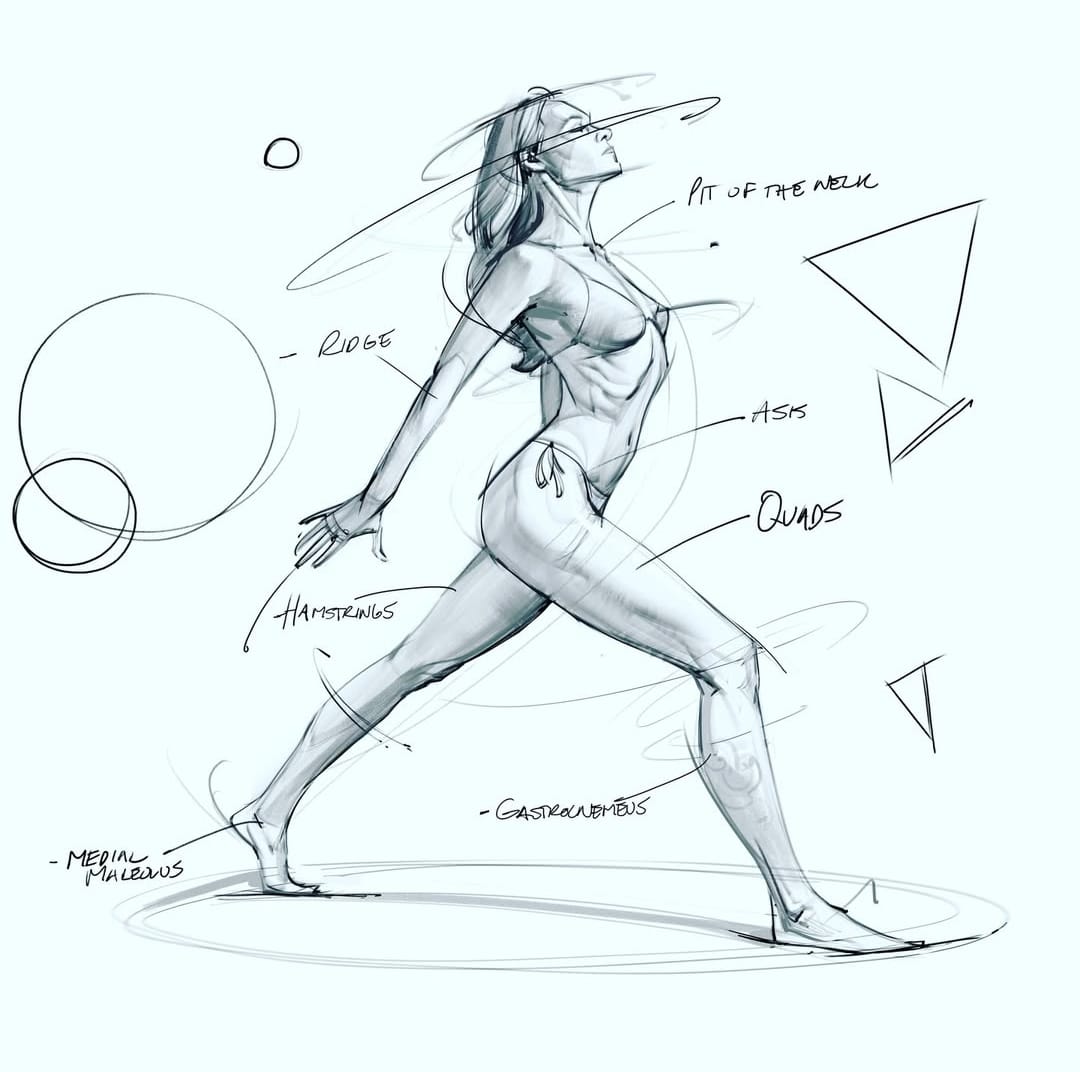 PIT OF THE NECK
- RIDGE
ASIS
QUADS
HAMSTRINGS
- GASTROCNEMEUS
- MEDIAL
MALEOLUS